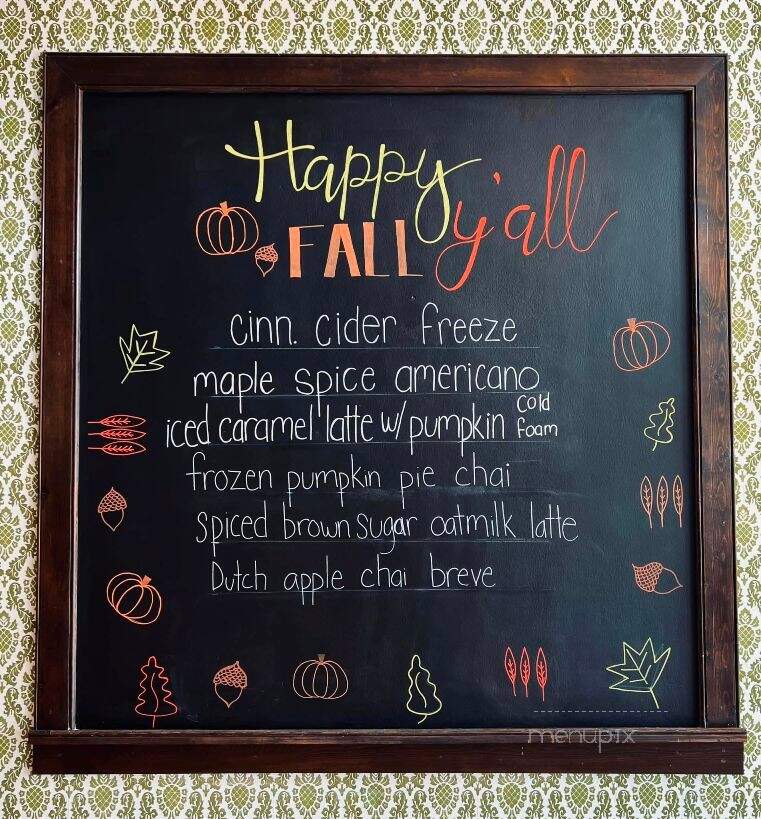 Happy
FALL y'all
cinn. cider freeze
maple spice americano
iced caramel latte w/ pumpkin cold foam
frozen pumpkin pie chai
spiced brown sugar oatmilk latte
Dutch apple chai breve
menupix